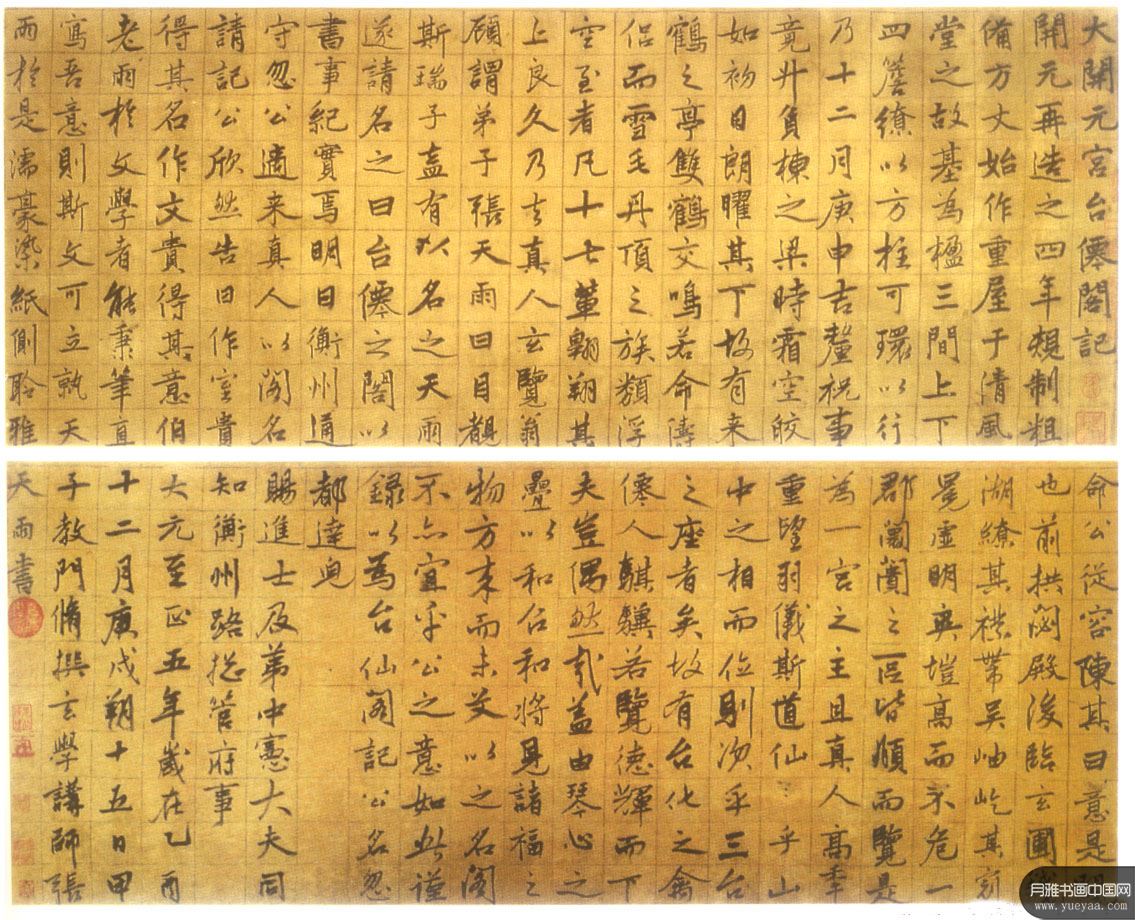 大開元宮台僊閣記
開元再造之四年規制粗
備方丈始作重屋于清風
堂之故基為楹三間上下
四簷繚以方柱可環以行
乃十二月庚申吉釐祝事
竟廾負棟之梁時霜空皎
如初日朗曜其下故有来
鶴之亭雙鶴交鳴若命儔
侣而雪毛丹頂之族類浮
空至者凡十七輩翱翔其
上良久乃去真人玄覽翁
顧謂弟子張天雨曰目覩
斯瑞子盍有以名之天雨
遂請名之曰台僊之閣以
書事紀實焉明日衡州通
守忽公適来真人以閣名
請記公欣然告曰作室貴
得其名作文貴得其意伯
老雨於文學者能秉筆直
寫吾意則斯文可立孰天
雨於是濡豪染紙側聆雅
命公從容陳其曰意是閣
也前拱閟殿後臨玄圃
湖繚其襟帶吳岫屹其
罳虛明爽塏高而不危一
郡闤闠之區皆頫而覽是
為一宮之主且真人高年
重望羽儀斯道仙乎山
中之相而位則次乎三台
之座者矣故有台化之禽
僊人騏驥若覽德輝而下
夫豈偶然哉蓋由琴心之
疊以和召和將見諸福之
物方来而未艾以之名閣
不亦宜乎公之意如此謹
録以為台仙阁記公名忽
都達迩
賜進士及第中憲大夫同
知衡州路捴管府事
大元至正五年歲在乙酉
十二月庚戌朔十五日甲
子教門脩撰玄學講師張
天雨書
月雅书画中国网
www.yueyaa.com